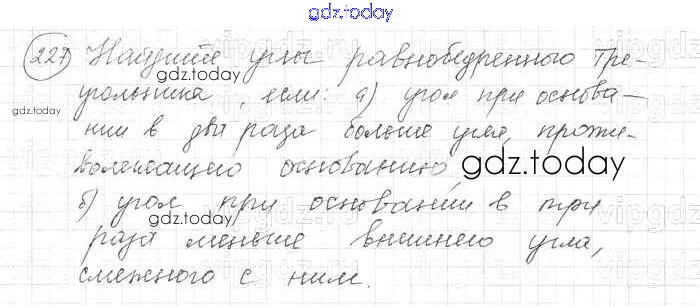 gdz.today
227 Найдите углы равнобедренного тре-
gdz.today
угольника, если: а) угол при основа-
нии в два раза больше угла, проти-
волежащего основанию,
gdz.today
б) угол при основании в три
gdz.today
раза меньше внешнего угла,
смежного с ним.